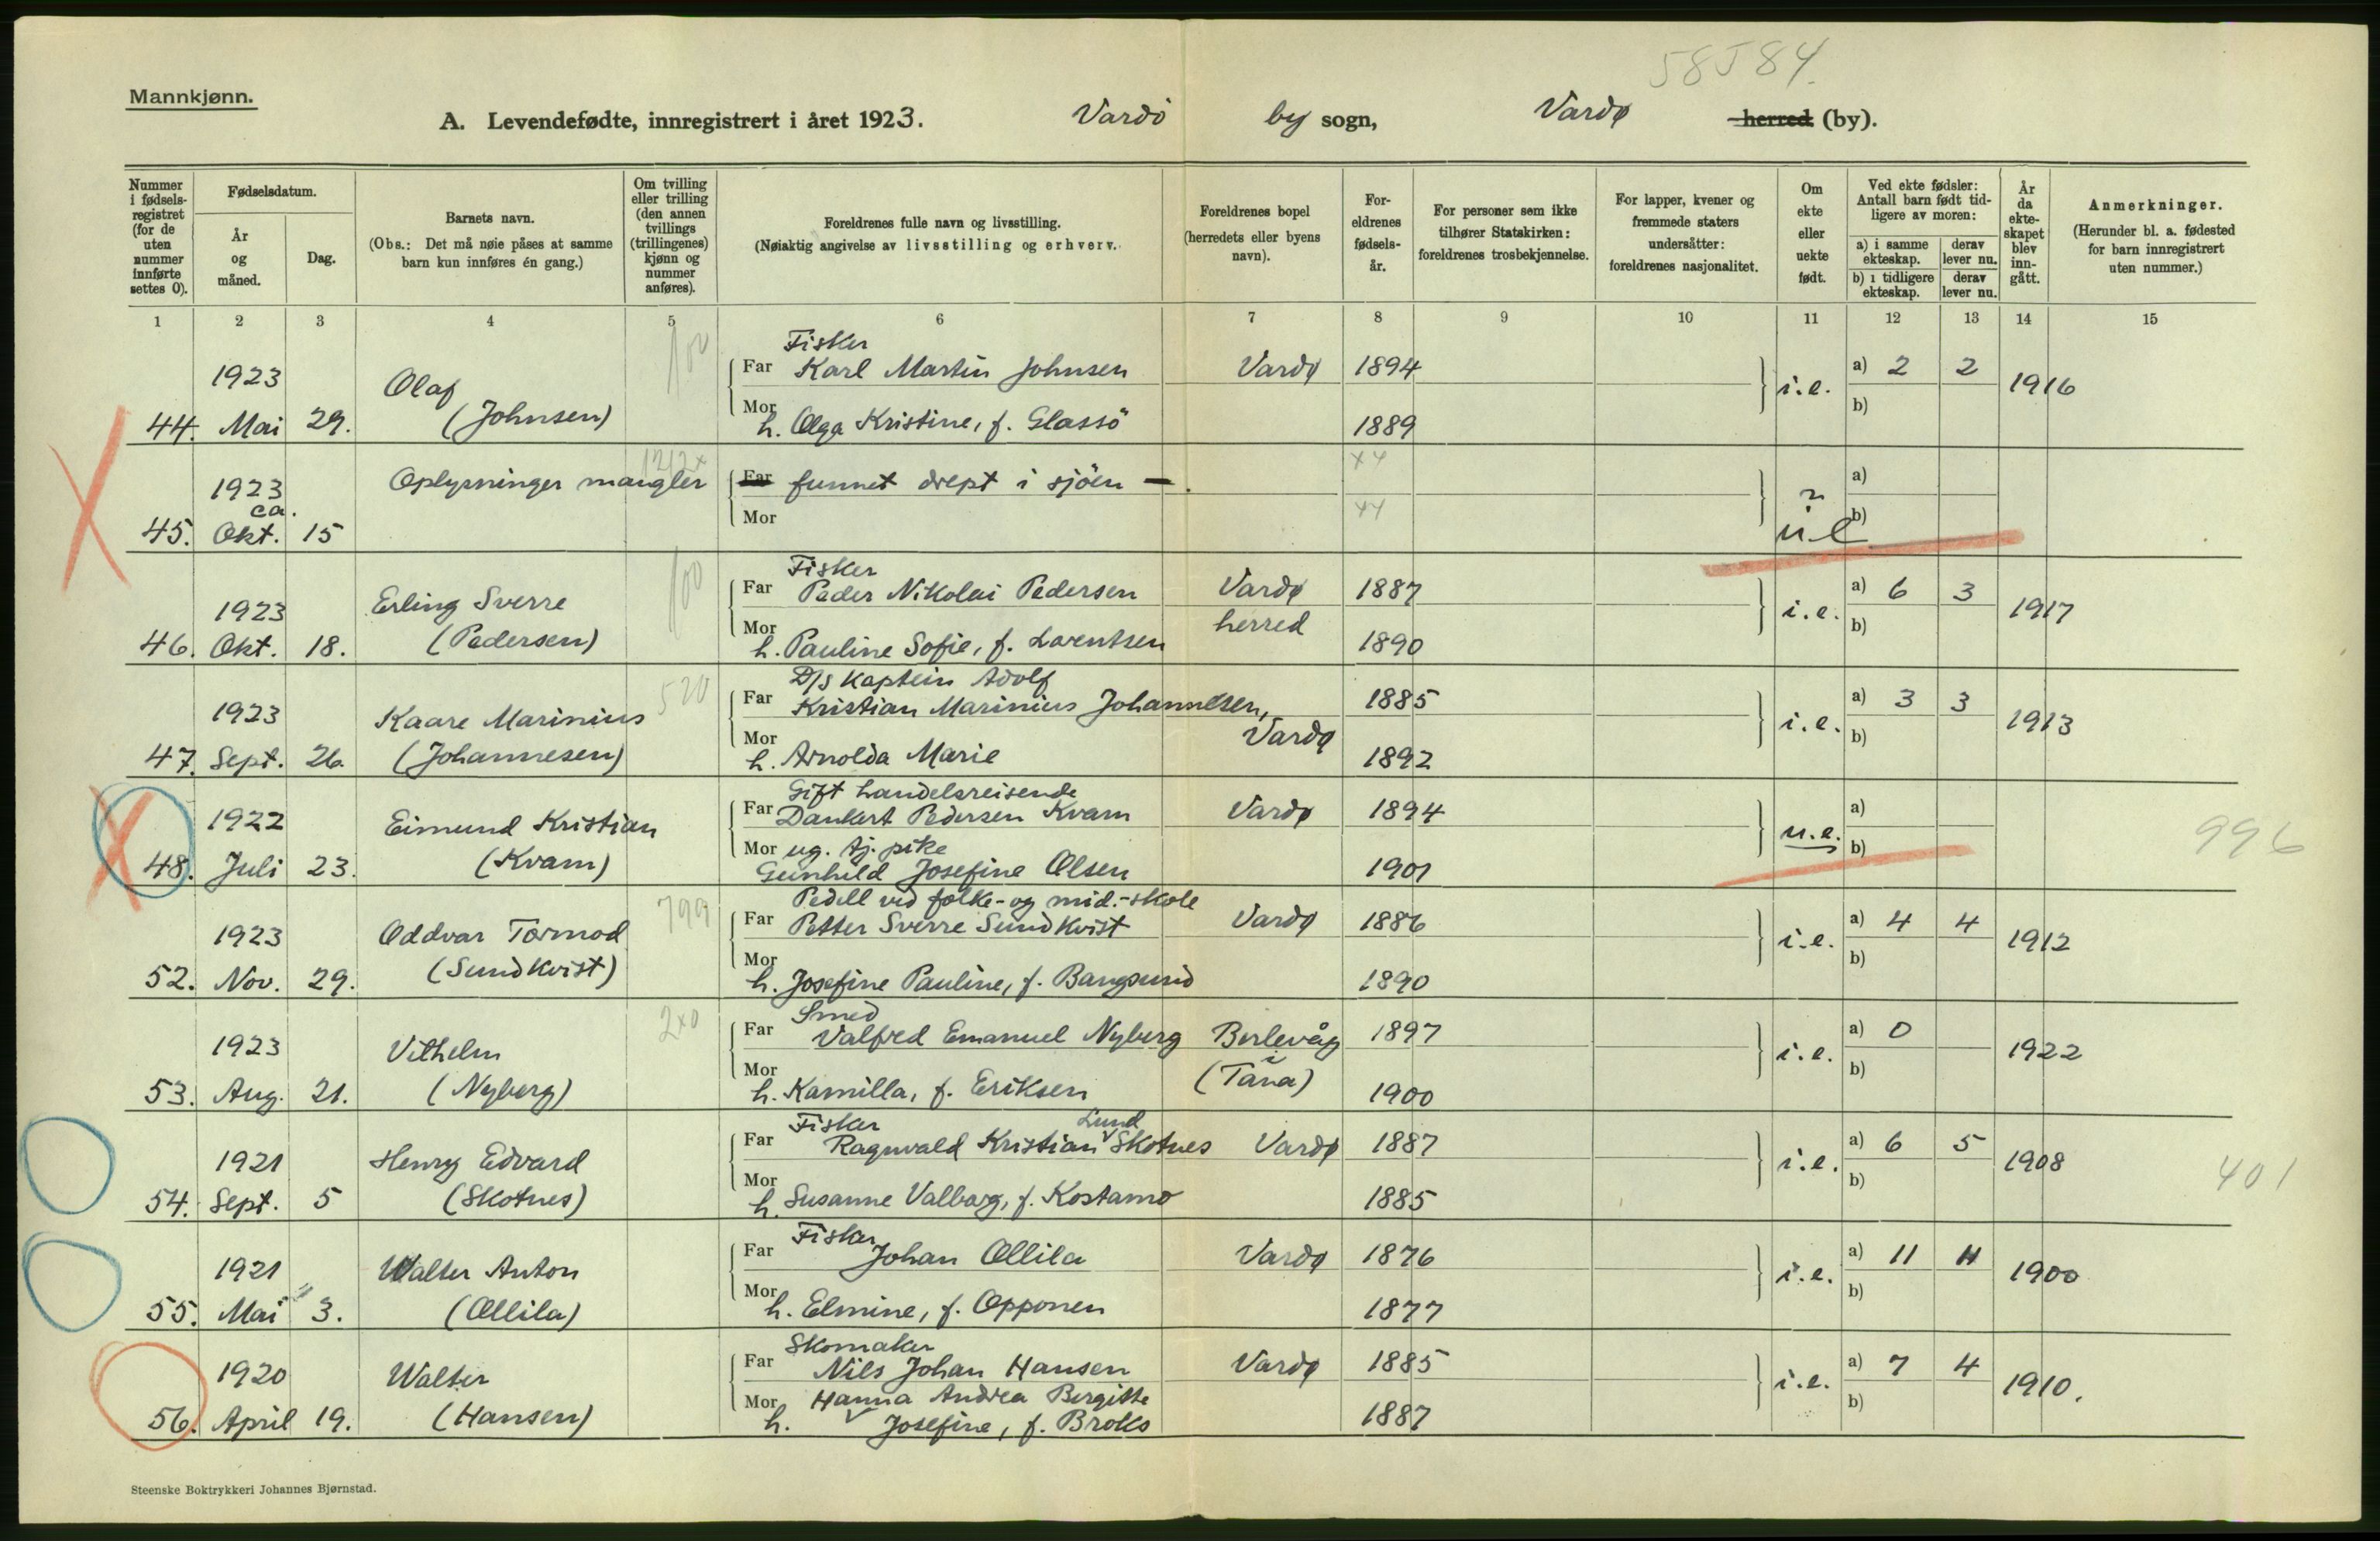 58584.
Mannkjønn.
A. Levendefødte, innregistrert i året 1923. Vardö by sogn, Vardø herred (by).
Nummer i fødsels-registret (for de uten nummer innførte settes 0).
Fødselsdatum.
År og måned.
Dag.
Barnets navn.
(Obs.: Det må nøie påses at samme barn kun innføres én gang.)
Om tvilling eller trilling (den annen tvillings (trillingenes) kjønn og nummer anføres).
Foreldrenes fulle navn og livsstilling.
(Nøiaktig angivelse av livsstilling og erhverv.)
Foreldrenes bopel (herredets eller byens navn).
For-eldrenes fødsels-år.
For personer som ikke tilhører Statskirken: foreldrenes trosbekjennelse.
For lapper, kvener og fremmede staters undersåtter: foreldrenes nasjonalitet.
Om ekte eller uekte født.
Ved ekte fødsler: Antall barn født tid-ligere av moren:
a) i samme ekteskap. derav lever nu.
b) i tidligere ekteskap. derav lever nu.
År da ekte-skapet blev inn-gått.
Anmerkninger.
(Herunder bl. a. fødested for barn innregistrert uten nummer.)
1 2 3 4 5 6 7 8 9 10 11 12 13 14 15
Fisker
1923 Olaf 100 Far Karl Martin Johnsen Vardø 1894 i.e. a) 2 2 1916
44. Mai 29. (Johnsen) Mor h. Olga Kristine, f. Glassö 1889 b)
1923 Oplysninger mangler 1212x Far funnet drept i sjöen —. xy a)
ca.
45. Okt. 15 Mor xy u.e b)
Fisker
1923 Erling Sverre 100 Far Peder Nikolai Pedersen Vardø 1887 i.e. a) 6 3 1917
46. Okt. 18. (Pedersen) Mor h. Pauline Sofie, f. Lorentsen herred 1890 b)
D/S Kaptein Adolf
1923 Kaare Marinius 520 Far Kristian Marinius Johannesen, 1885 i.e. a) 3 3 1913
47. Sept. 26. (Johannesen) Mor h. Arnolda Marie Vardø 1892 b)
Gift handelsreisende
1922 Eimund Kristian Far Dankert Pedersen Kvam Vardø 1894 u.e. a) 996
48. Juli 23. (Kvam) Mor ug. tj. pike b)
Gunhild Josefine Olsen 1901
Pedell ved folke- og mid.-skole
1923 Oddvar Tormod 799 Far Petter Sverre Sundkvist Vardø 1886 i.e. a) 4 4 1912
52. Nov. 29. (Sundkvist) Mor h. Josefine Pauline, f. Bangsund 1890 b)
Smed
1923 Vilhelm 2x0 Far Valfred Emanuel Nyberg Berlevåg 1897 i.e. a) 0 1922
i
53. Aug. 21. (Nyberg) Mor h. Kamilla, f. Eriksen (Tana) 1900 b)
Fisker Lund
1921 Henry Edvard Far Ragnvald Kristian Skotnes Vardø 1887 i.e. a) 6 5 1908 401
54. Sept. 5 (Skotnes) Mor h. Susanne Valborg, f. Kostamo 1885 b)
Fisker
1921 Walter Anton Far Johan Ollila Vardø 1876 i.e. a) 11 11 1900
55. Mai 3. (Ollila) Mor h. Elmine, f. Opponen 1877 b)
Skomaker
1920 Walter Far Nils Johan Hansen Vardø 1885 i.e. a) 7 4 1910.
Mor Hanna Andrea Bergitte b)
56. April 19. (Hansen) h. Josefine, f. Broks 1887
Steenske Boktrykkeri Johannes Bjørnstad.